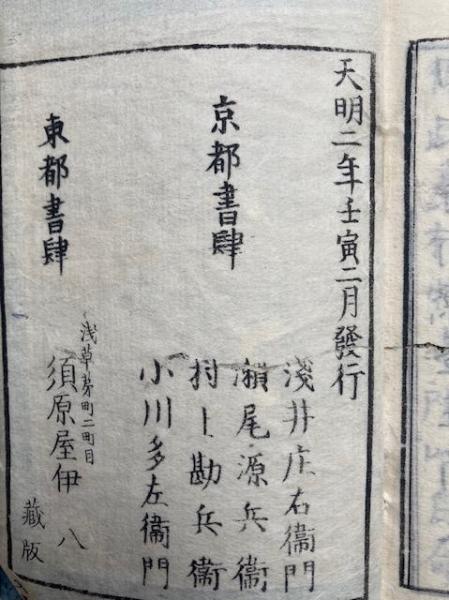 天明二年壬寅二月發行
京都書肆
淺井庄右衞門
瀬尾源兵衞
村上勘兵衞
小川多左衞門
東都書肆
浅草茅町二町目
須原屋伊八
藏版